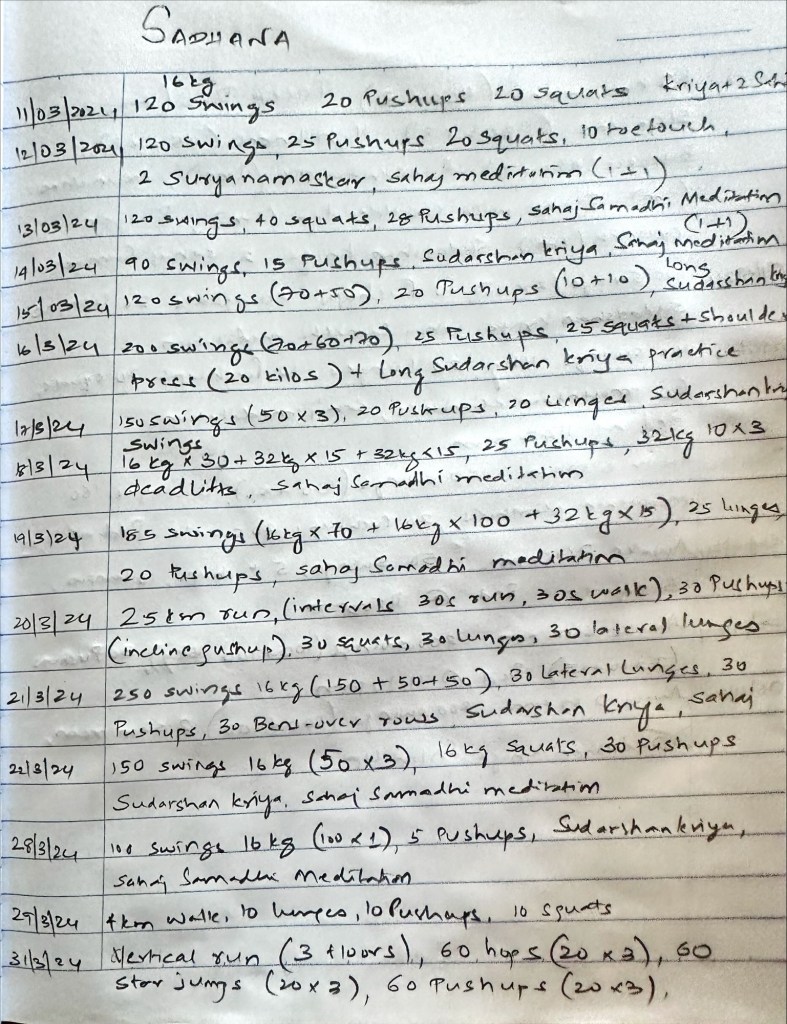 SADHANA
16kg
11/03/2024 120 Swings 20 Pushups 20 squats Kriya + 2
12/03/2024 120 swings, 25 Pushups 20 squats, 10 toe touch,
2 Suryanamaskar, sahaj meditation (1+1)
13/03/24 120 swings, 40 squats, 28 Pushups, sahaj Samadhi Meditation
(1+1)
14/03/24 90 swings, 15 Pushups, Sudarshan kriya, Sahaj meditation
15/03/24 120 swings (70+50), 20 Pushups (10+10), Long
16/3/24 200 swings (70+60+70), 25 Pushups, 25 squats + shoulder
press (20 kilos) + Long Sudarshan kriya practice
17/3/24 150 swings (50 x 3), 20 Pushups, 20 lunges, Sudarshan
swings
18/3/24 16 kg x 30 + 32kg x 15 + 32kg x 15, 25 Pushups, 32kg 10 x 3
deadlifts, Sahaj Samadhi meditation
19/3/24 185 swings (16kg x 70 + 16kg x 100 + 32kg x 15), 25 lunges,
20 Pushups, sahaj Samadhi meditation
20/3/24 2.5 km run, (intervals 30s run, 30s walk), 30 Pushups
(incline pushup), 30 squats, 30 lunges, 30 lateral lunges
21/3/24 250 swings 16kg (150 + 50+50), 30 lateral lunges, 30
Pushups, 30 Bent-over rows Sudarshan Kriya, Sahaj
22/3/24 150 swings 16kg (50 x 3), 16 kg Squats, 30 Pushups
Sudarshan kriya, Sahaj Samadhi meditation
28/3/24 100 swings 16 kg (100 x 1), 5 Pushups, Sudarshan kriya,
sahaj Samadhi Meditation
29/3/24 4km walk, 10 lunges, 10 Pushups, 10 squats
31/3/24 Vertical run (3 floors), 60 hops (20 x 3), 60
Star jumps (20 x 3), 60 Pushups (20 x 3),